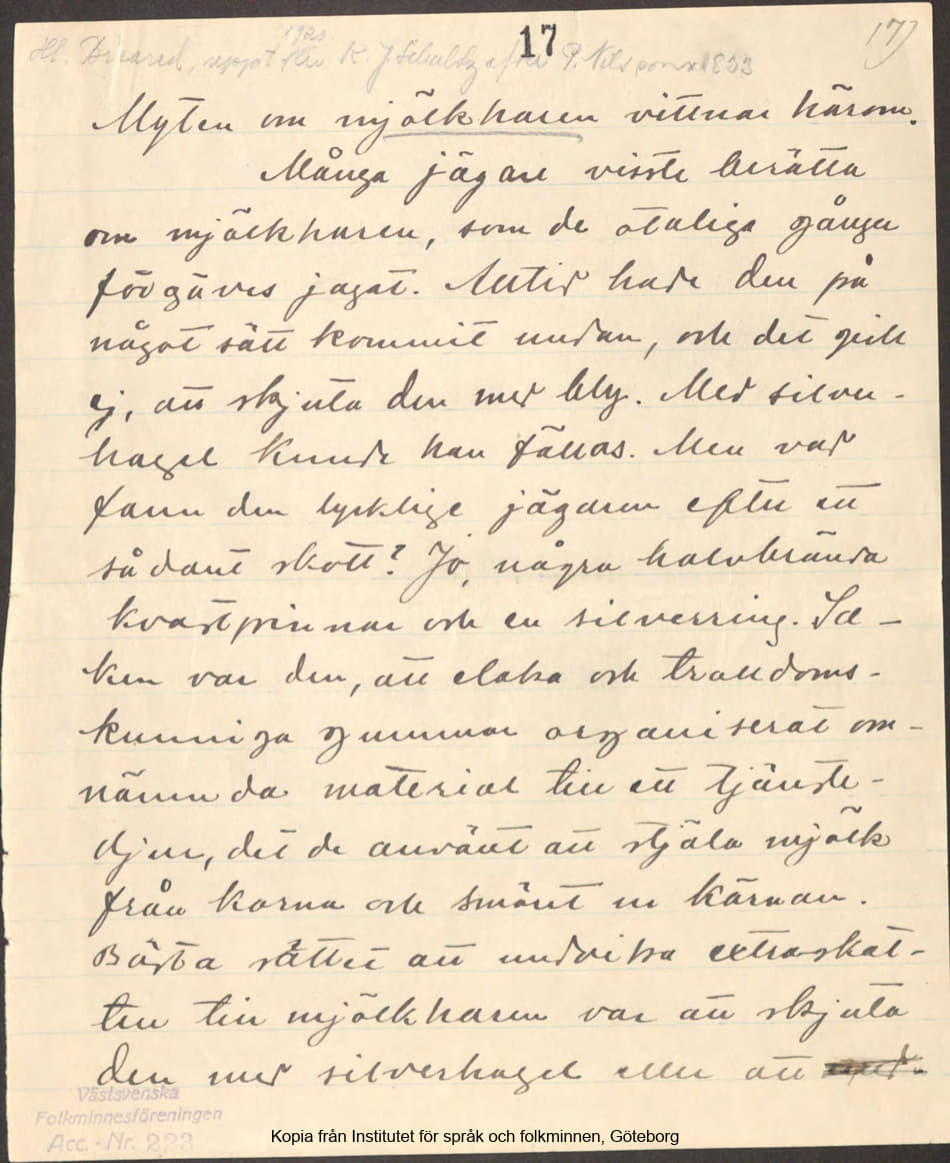 17
17)
Hl. Breared, uppt. 1923 av K. J. Schultz efter P. Nilsson f. 1833
Myten om mjölkharen vittnar härom.
Många jägare visste berätta
om mjölkharen, som de otaliga gånger
förgäves jagat. Alltid hade den på
något sätt kommit undan, och det gick
ej, att skjuta den med bly. Med silver-
hagel kunde han fällas. Men vad
fann den lycklige jägaren efter ett
sådant skott? Jo, några halvbrända
kvastpinnar och en silverring. Sa-
ken var den, att elaka och trolldoms-
kunniga gummor organiserat om-
nämnda material till ett tjänste-
djur, det de använt att stjäla mjölk
från korna och smöret ur kärnan.
Bästa sättet att undvika extraskat-
ten till mjölkharen var att skjuta
den med silverhagel eller att
Västsvenska
Folkminnesföreningen
Acc. - Nr. 223
Kopia från Institutet för språk och folkminnen, Göteborg